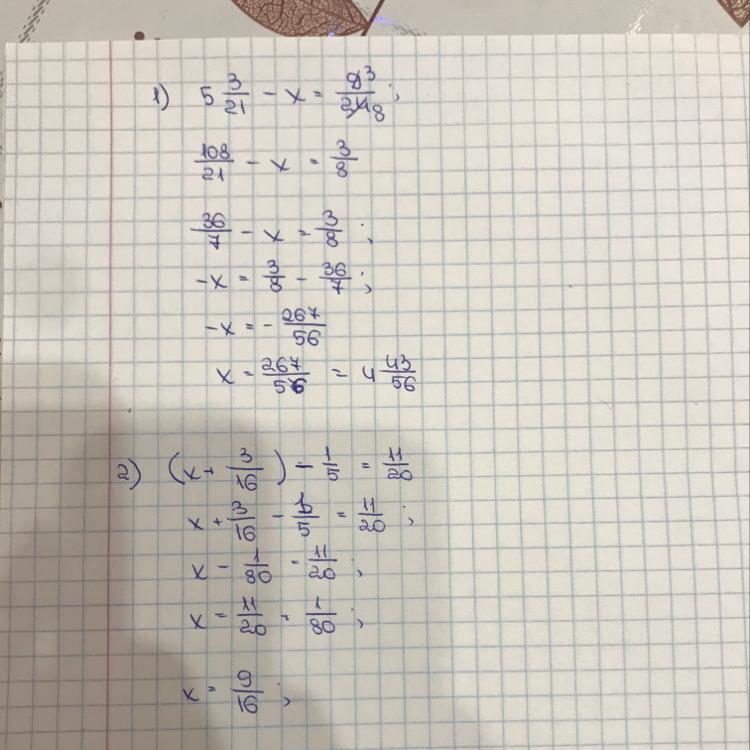 1) 5 3/21 - x = 9 3/24 8;
108/21 - x = 3/8
36/7 - x = 3/8;
-x = 3/8 - 36/7;
-x = - 267/56
x = 267/56 = 4 43/56
2) (x + 3/16) - 1/5 = 11/20
x + 3/16 - 1/5 = 11/20;
x - 1/80 = 11/20;
x = 11/20 - 1/80;
x = 9/16;